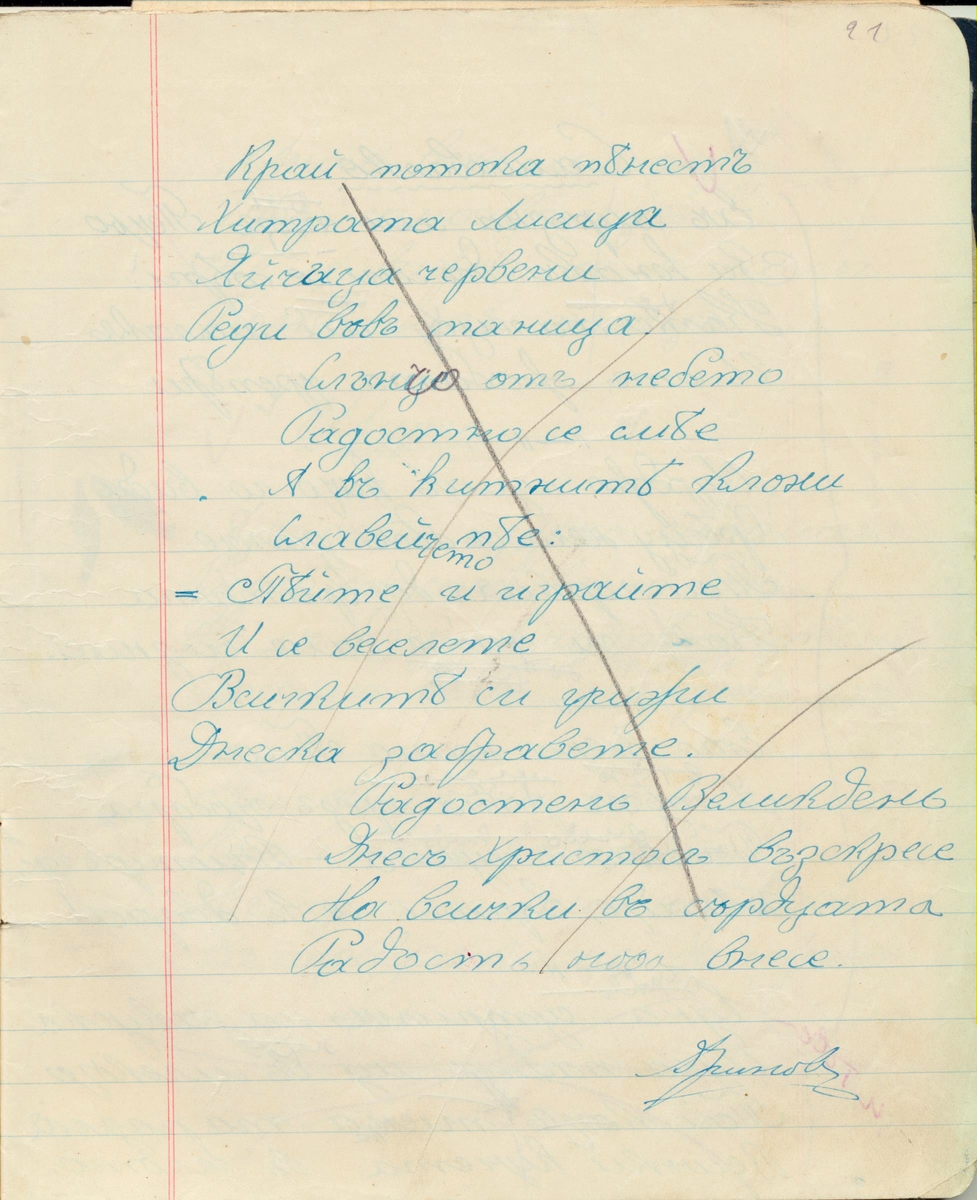 21
Край потока пѣнестъ
Хитрата Лисица
Яйчица червени
Реди вовъ паница.
Слънцо отъ небето
Радостно се смѣе
А въ китнитѣ клони
Славейчето пѣе:
= Пѣйте и играйте
И се веселете
Всичкитѣ си грижи
Днеска забравете.
Радостенъ Великдень
Днесъ Христосъ възкресе
На всички въ сърдцата
Радость нова внесе.